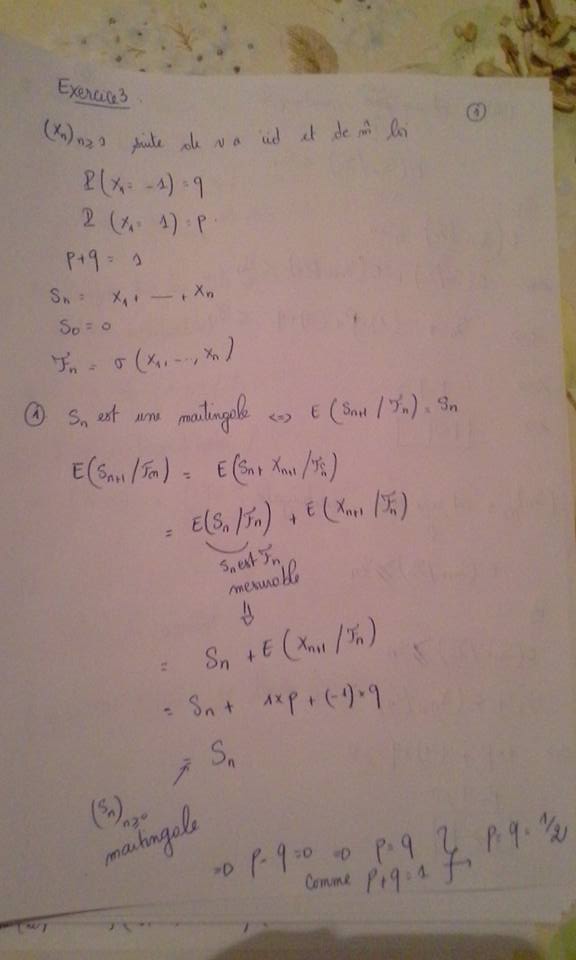 Exercice 3.
①
(Xn)n≥1 suite de va iid et de m̂ loi
P(X1 = -1) = q
P(X1 = 1) = p.
p+q = 1
Sn = X1 + — + Xn
S0 = 0
Fn = σ(X1, ..., Xn)
① Sn est une martingale <=> E(Sn+1 / Fn) = Sn
E(Sn+1 / Fn) = E(Sn + Xn+1 / Fn)
= E(Sn / Fn) + E(Xn+1 / Fn)
Sn est Fn
mesurable
⇓
= Sn + E(Xn+1 / Fn)
= Sn + 1×p + (-1)×q
= Sn
(Sn)n≥0
martingale
=> p - q = 0 => p = q } p = q = 1/2
comme p+q = 1